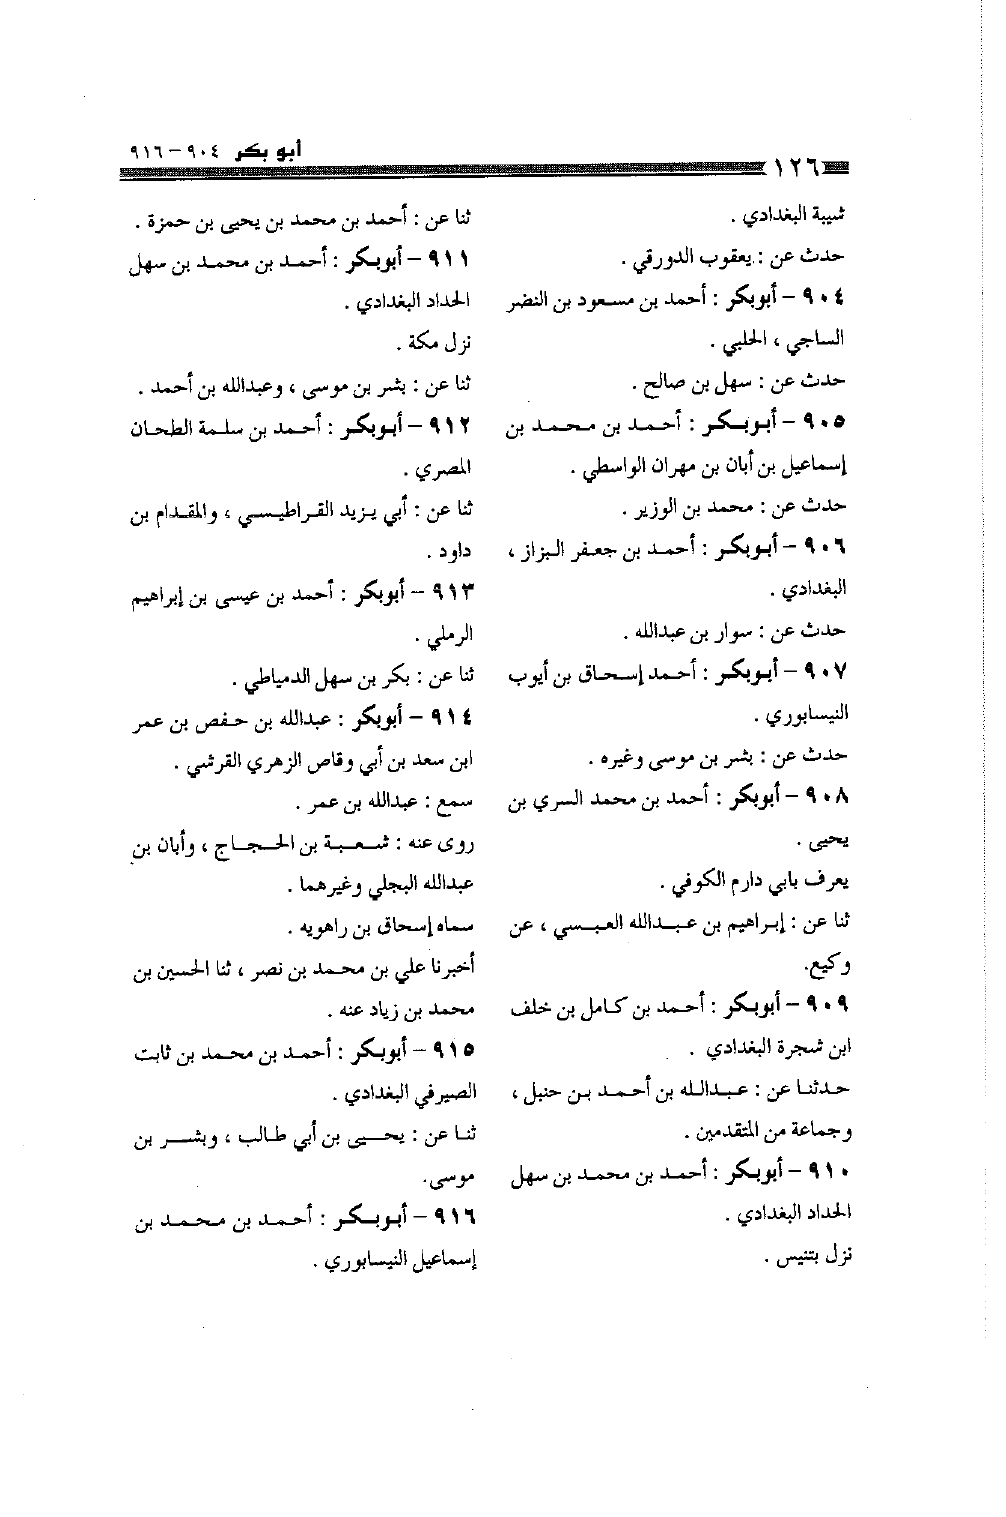 أبو بكر ٩٠٤ - ٩١٦
١٢٦
شيبة البغدادي .
حدث عن : يعقوب الدورقي .
٩٠٤ - أبوبكر : أحمد بن مسعود بن النضر
الساجي ، الحلبي .
حدث عن : سهل بن صالح .
٩٠٥ - أبوبكر : أحمد بن محمد بن
إسماعيل بن أبان بن مهران الواسطي .
حدث عن : محمد بن الوزير .
٩٠٦ - أبوبكر : أحمد بن جعفر البزاز ،
البغدادي .
حدث عن : سوار بن عبدالله .
٩٠٧ - أبوبكر : أحمد إسحاق بن أيوب
النيسابوري .
حدث عن : بشر بن موسى وغيره .
٩٠٨ - أبوبكر : أحمد بن محمد السري بن
يحيى .
يعرف بابي دارم الكوفي .
ثنا عن : إبراهيم بن عبدالله العبسي ، عن
وكيع.
٩٠٩ - أبوبكر : أحمد بن كامل بن خلف
ابن شجرة البغدادي .
حدثنا عن : عبدالله بن أحمد بن حنبل ،
وجماعة من المتقدمين .
٩١٠ - أبوبكر : أحمد بن محمد بن سهل
الحداد البغدادي .
نزل بتنيس .
ثنا عن : أحمد بن محمد بن يحيى بن حمزة .
٩١١ - أبوبكر : أحمد بن محمد بن سهل
الحداد البغدادي .
نزل مكة .
ثنا عن : بشر بن موسى ، وعبدالله بن أحمد .
٩١٢ - أبوبكر : أحمد بن سلمة الطحان
المصري .
ثنا عن : أبي يزيد القراطيسي ، والمقدام بن
داود .
٩١٣ - أبوبكر : أحمد بن عيسى بن إبراهيم
الرملي .
ثنا عن : بكر بن سهل الدمياطي .
٩١٤ - أبوبكر : عبدالله بن حفص بن عمر
ابن سعد بن أبي وقاص الزهري القرشي .
سمع : عبدالله بن عمر .
روى عنه : شعبة بن الحجاج ، وأبان بن
عبدالله البجلي وغيرهما .
سماه إسحاق بن راهويه .
أخبرنا علي بن محمد بن نصر ، ثنا الحسين بن
محمد بن زياد عنه .
٩١٥ - أبوبكر : أحمد بن محمد بن ثابت
الصيرفي البغدادي .
ثنا عن : يحيى بن أبي طالب ، وبشر بن
موسى.
٩١٦ - أبوبكر : أحمد بن محمد بن
إسماعيل النيسابوري .